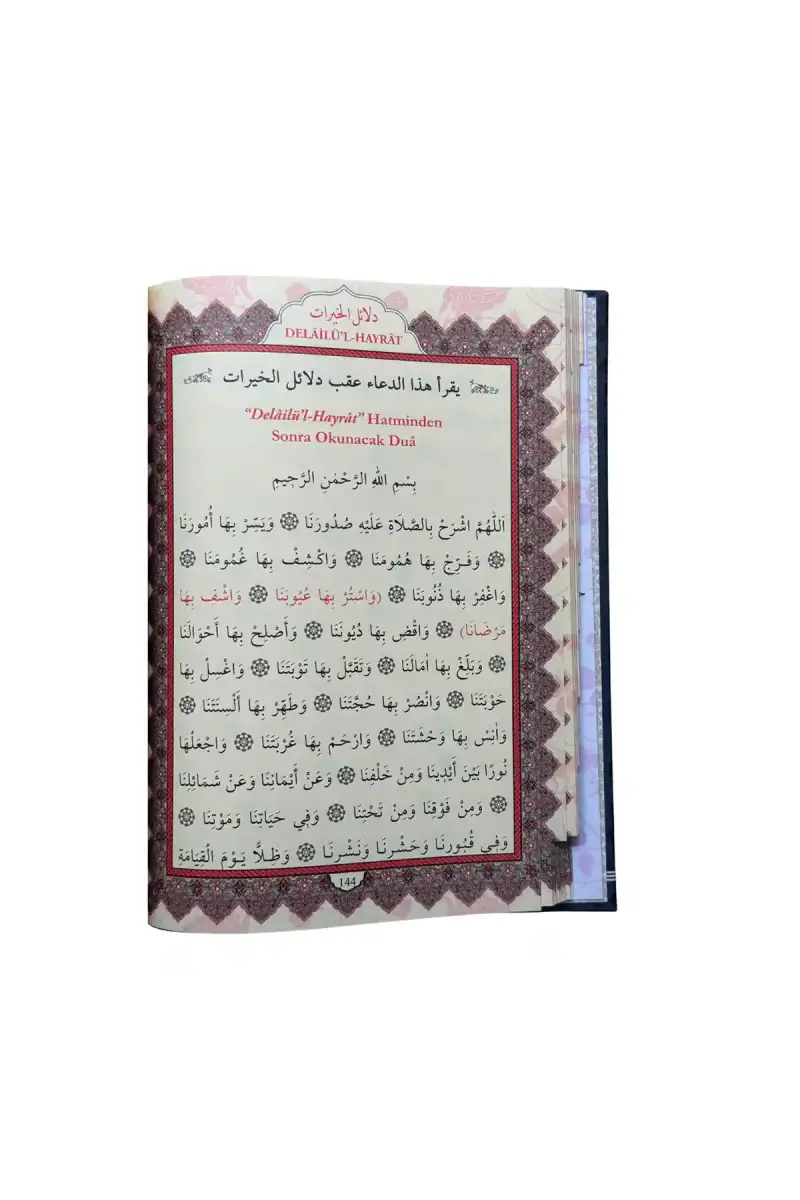 دلائل الخيرات
DELÂİLÜ'L-HAYRÂT
يقرأ هذا الدعاء عقب دلائل الخيرات
“Delâilü'l-Hayrât” Hatminden
Sonra Okunacak Duâ
بِسْمِ اللهِ الرَّحْمٰنِ الرَّحِيمِ
اَللّٰهُمَّ اشْرَحْ بِالصَّلَاةِ عَلَيْهِ صُدُورَنَا ۞ وَيَسِّرْ بِهَا أُمُورَنَا
۞ وَفَرِّجْ بِهَا هُمُومَنَا ۞ وَاكْشِفْ بِهَا غُمُومَنَا ۞
وَاغْفِرْ بِهَا ذُنُوبَنَا ۞ (وَاسْتُرْ بِهَا عُيُوبَنَا ۞ وَاشْفِ بِهَا
مَرْضَانَا) ۞ وَاقْضِ بِهَا دُيُونَنَا ۞ وَأَصْلِحْ بِهَا أَحْوَالَنَا
۞ وَبَلِّغْ بِهَا اٰمَالَنَا ۞ وَتَقَبَّلْ بِهَا تَوْبَتَنَا ۞ وَاغْسِلْ بِهَا
حَوْبَتَنَا ۞ وَانْصُرْ بِهَا حُجَّتَنَا ۞ وَطَهِّرْ بِهَا أَلْسِنَتَنَا ۞
وَاٰنِسْ بِهَا وَحْشَتَنَا ۞ وَارْحَمْ بِهَا غُرْبَتَنَا ۞ وَاجْعَلْهَا
نُورًا بَيْنَ أَيْدِينَا وَمِنْ خَلْفِنَا ۞ وَعَنْ أَيْمَانِنَا وَعَنْ شَمَائِلِنَا
۞ وَمِنْ فَوْقِنَا وَمِنْ تَحْتِنَا ۞ وَفِي حَيَاتِنَا وَمَوْتِنَا ۞
وَفِي قُبُورِنَا وَحَشْرِنَا وَنَشْرِنَا ۞ وَظِلًّا يَوْمَ الْقِيَامَةِ
144